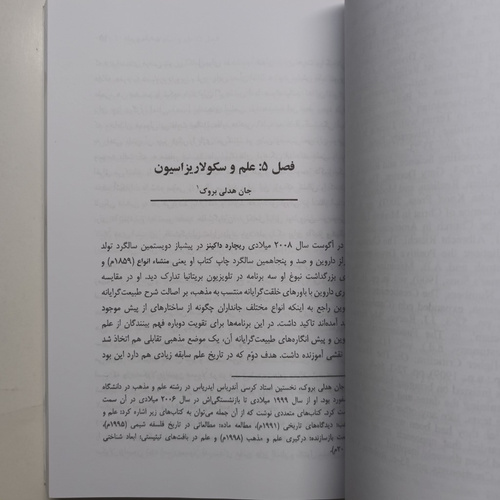 فصل ۵: علم و سکولاریزاسیون
جان هدلی بروک۱
در آگوست سال ۲۰۰۸ میلادی ریچارد داکینز در پیشباز دویستمین سالگرد تولد
داروین و صد و پنجاهمین سالگرد چاپ کتاب او یعنی منشاء انواع (۱۸۵۹م) و
بزرگداشت نبوغ او سه برنامه در تلویزیون بریتانیا تدارک دید. او در مقایسه
داروین با باورهای خلقت‌گرایانه منتسب به مذهب، بر اصالت شرح طبیعت‌گرایانه
راجع به اینکه انواع مختلف جانداران چگونه از ساختارهای از پیش موجود
آمده‌اند تاکید داشت. در این برنامه‌ها برای تقویت دوباره فهم بینندگان از علم
و پیش انگاره‌های طبیعت‌گرایانه آن، یک موضع مذهبی تقابلی هم اتخاذ شد
نقشی آموزنده داشت. هدف دوم که در تاریخ علم سابقه زیادی هم دارد این بود
جان هدلی بروک، نخستین استاد کرسی آندریاس ایدریاس در رشته علم و مذهب در دانشگاه
بود. او از سال ۱۹۹۹ میلادی تا بازنشستگی‌اش در سال ۲۰۰۶ میلادی در آن سمت
کرد. کتاب‌های متعددی نوشت که از آن جمله می‌توان به کتاب‌های زیر اشاره کرد: علم و
دیدگاه‌های تاریخی (۱۹۹۱م)، مطالعه ماده: مطالعاتی در تاریخ فلسفه شیمی (۱۹۹۵م)،
بازسازنده: درگیری علم و مذهب (۱۹۹۸م) و علم در بافت‌های تئیستی: ابعاد شناختی